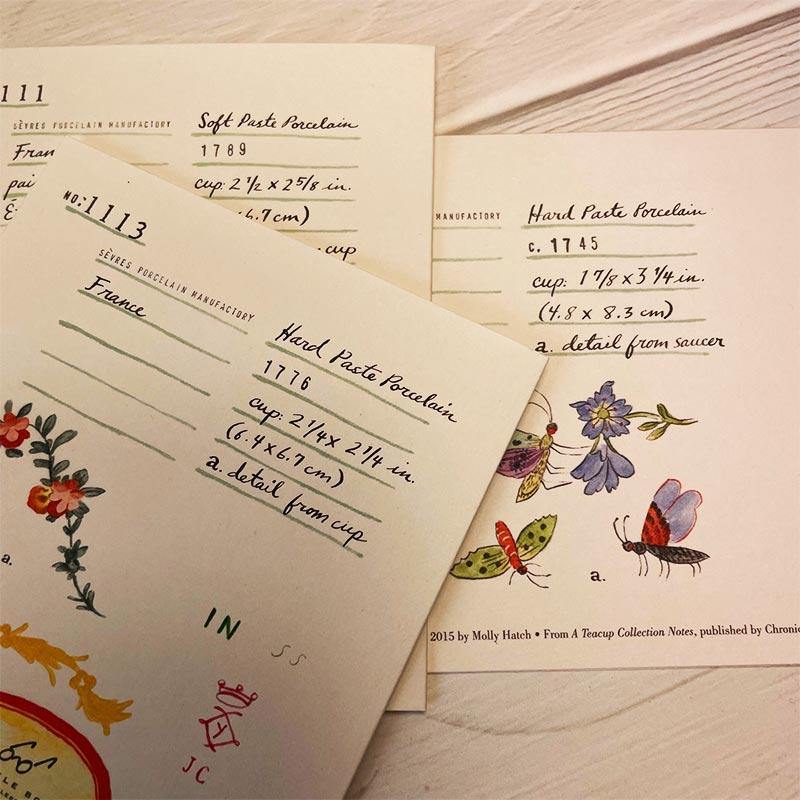 111
SÈVRES PORCELAIN MANUFACTORY
Soft Paste Porcelain
1789
cup: 2 1/2 x 2 5/8 in.
6.7 cm)
cup
NO: 1113
SÈVRES PORCELAIN MANUFACTORY
France
Hard Paste Porcelain
1776
cup: 2 1/4 x 2 1/4 in.
(6.4 x 6.7 cm)
a. detail from cup
a.
IN SS
JC
MANUFACTORY
Hard Paste Porcelain
c. 1745
cup: 1 7/8 x 3 1/4 in.
(4.8 x 8.3 cm)
a. detail from saucer
a.
2015 by Molly Hatch • From A Teacup Collection Notes, published by Chronic